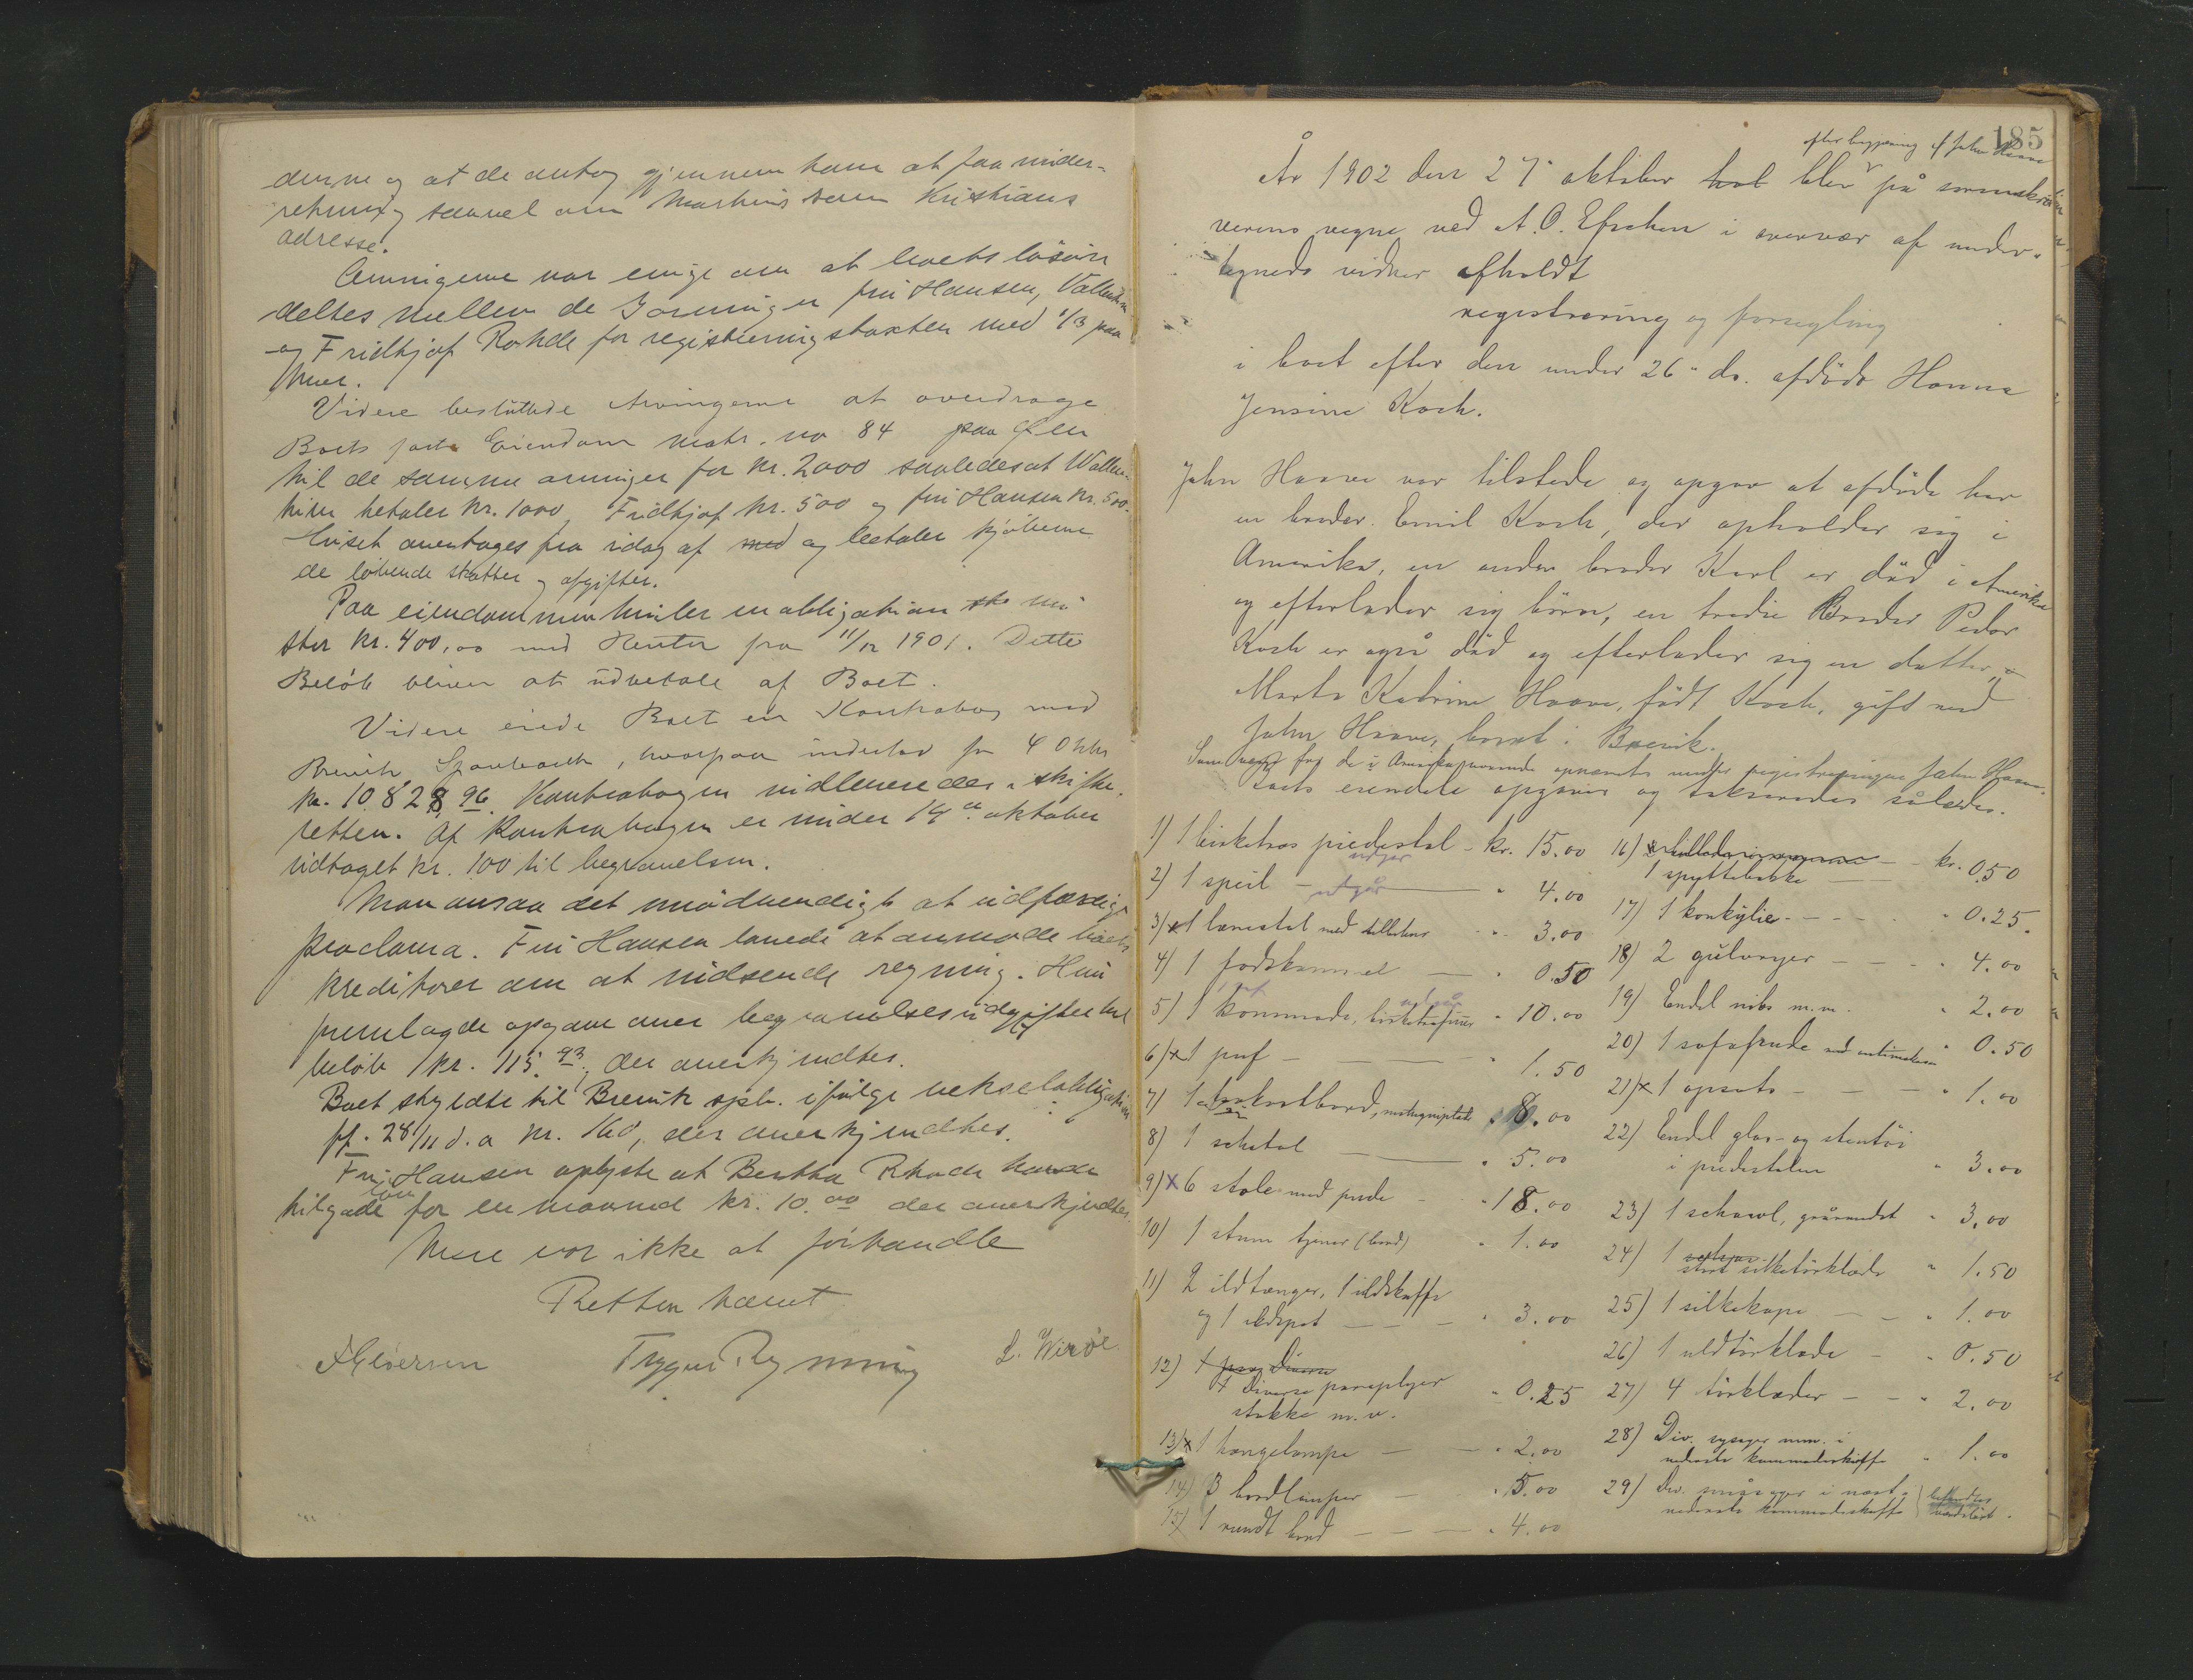 derne og at de antog gjennem ham at faa under-
retning saavel om Martins som Kristians
adresse.
Arvingerne var enige om at boets løsøre
deltes mellem de Arvinger fru Hansen, Vallentin
og Fridtjof Rohde for registreringstaxten med 1/3 paa
hver.
Videre besluttede Arvingerne at overdrage
Boets faste Eiendom matr. no 84 paa Øen
til de samme arvinger for kr. 2000 saaledes at Wallen-
tin betaler kr. 1000, Fridtjof kr. 500 og fru Hansen kr. 500.
Huset overtages fra idag af med og betaler kjøberne
de løbende skatter og afgifter.
Paa eiendommen hviler en obligation
stor kr. 400,00 med Renter fra 11/12 1901. Dette
Beløb bliver at udbetale af Boet.
Videre eiede Boet en Kontrabog med
Brevik Sparebank, hvorpaa indestod
kr. 10828,96. Kontrabogen skifte-
retten. Af Kontrabogen er under 14de oktober
udtaget kr. 100 til begravelsen.
Man ansaa det unødvendigt at udfærdige
proclama. Fru Hansen lovede at anmode boets
kreditorer om at indsende regning. Hun
fremlagde opgave over begravelsesudgifter til
beløb kr. 115.93, der anerkjendtes.
Boet skyldte til Brevik spb. ifølge vekselobligation
pf. 28/11 d.a kr. 160, der anerkjendtes.
Fru Hansen oplyste at Bertha Rhode havde
tilgode løn for en maaned kr. 10.00 der anerkjendtes.
Mere var ikke at forhandle
Retten hævet
Trygve Rynning
L. Wirøe
185
efter begjæring af John Haave
År 1902 den 27 oktober blev på sorenskri-
verens vegne ved A. O. i overvær af under-
tegnede vidner afholdt
registrering og forsegling
i boet efter den under 26 ds. afdøde Hanna
Jensine Koch.
John Haave var tilstede og opgav at afdøde har
en broder Emil Koch, der opholder sig i
Amerika, en anden broder Karl er død i Amerika
og efterlader sig børn, en tredie Broder Peder
Koch er også død og efterlader sig en datter,
Marta Katrine Haave, født Koch, gift med
John Haave, boende i Brevik.
Som værge for de i Amerika værende opnævntes under registreringen John Haave.
Boets eiendele opgaves og takseredes således.
1) 1 birketræs piedestal - kr. 15.00
2) 1 speil - utgår " 4.00
3) x 1 lænestol med " 3.00
4) 1 fodskammel " 0.50
5) 1 kommode, birketræsfinér utgår " 10.00
6) x 1 puf - " 1.50
7) 1 " 8.00
8) 1 " 5.00
9) x 6 stole med pude " 18.00
10) 1 stum tjener (bord) " 1.00
11) 2 ildtænger, 1 ildskuffe
og 1 " 3.00
12) diverse paraplyer
stokke m.v. " 0.25
13) x 1 hængelampe - " 2.00
14) 3 bordlamper - " 5.00
15) 1 rundt bord - " 4.00
16) 1 spyttebakke - kr. 0.50
17) 1 konkylie - " 0.25.
18) 2 gulvryer - " 4.00
19) Endel nips m.m. " 2.00
20) 1 sofapude med " 0.50
21) x 1 opsats - " 1.00
22) Endel glas- og stentøi
i piedestalen " 3.00
23) 1 schawl, gråmeleret " 3.00
24) 1 stort silketørklæde " 1.50
25) 1 silkekape - " 1.00
26) 1 uldtørklæde - " 0.50
27) 4 tørklæder - " 2.00
28) Div. sysager m.m. i
nederste kommodeskuffe " 1.00
29) Div. småsager i næst-
nederste kommodeskuffe